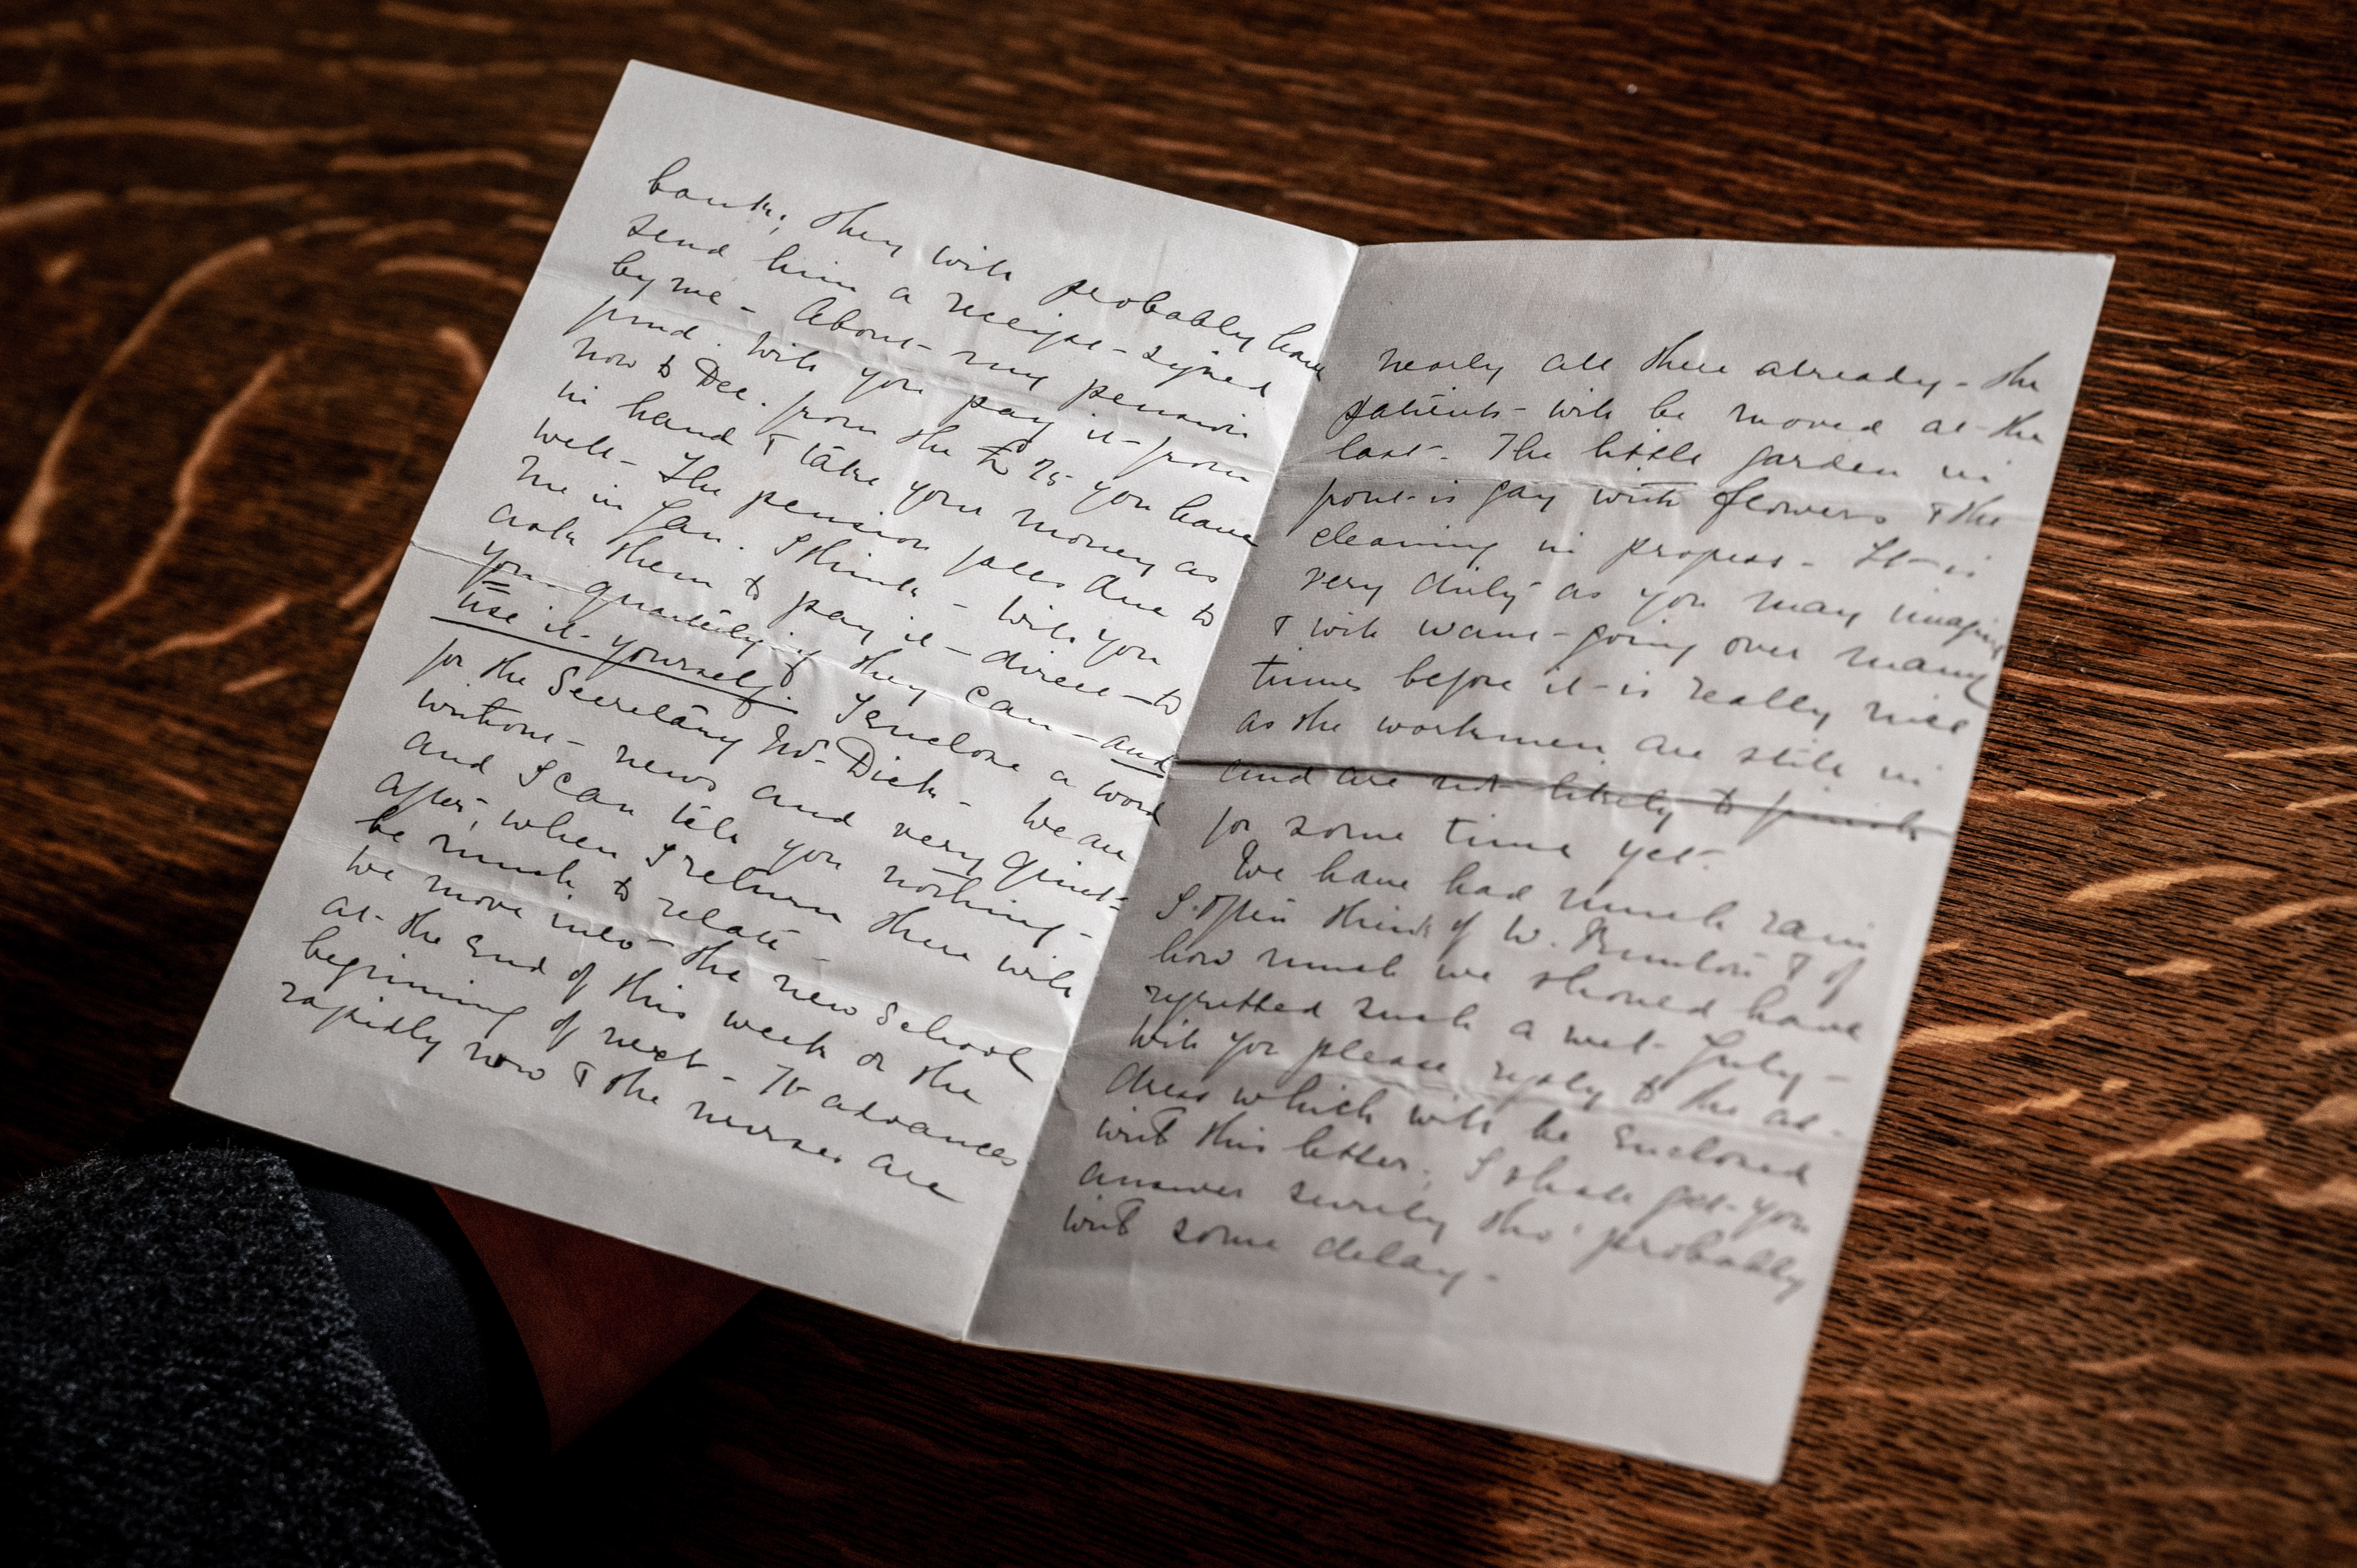 bank; they will probably have
send him a receipt - signed
by me - About - my pension
fund. Will you pay it - from
now to Dec. from the £25 you have
in hand & take your money as
well - The pension falls due to
me in Jan. I think - will you
ask them to pay it - direct - to
you - quarterly if they can - and
use it - yourself. I enclose a word
for the Secretary Mr. Dick - We are
without - news and very quiet -
and I can tell you nothing -
after, when I return there will
be much to relate -
We move into - the new School
at - the end of this week or the
beginning of next - It advances
rapidly now & the nurses are
nearly all there already - the
patients - will be moved at - the
last - The little garden in
front - is gay with flowers & the
cleaning in progress - It - is
very dirty as you may imagine
& will want - going over many
times before it - is really nice
as the workmen are still in
and are not likely to finish
for some time yet -
We have had much rain
I often think of W. & of
how much we should have
regretted such a wet - July -
Will you please reply to the ad-
dress which will be enclosed
with this letter. I shall get - you
answer surely tho' probably
with some delay -